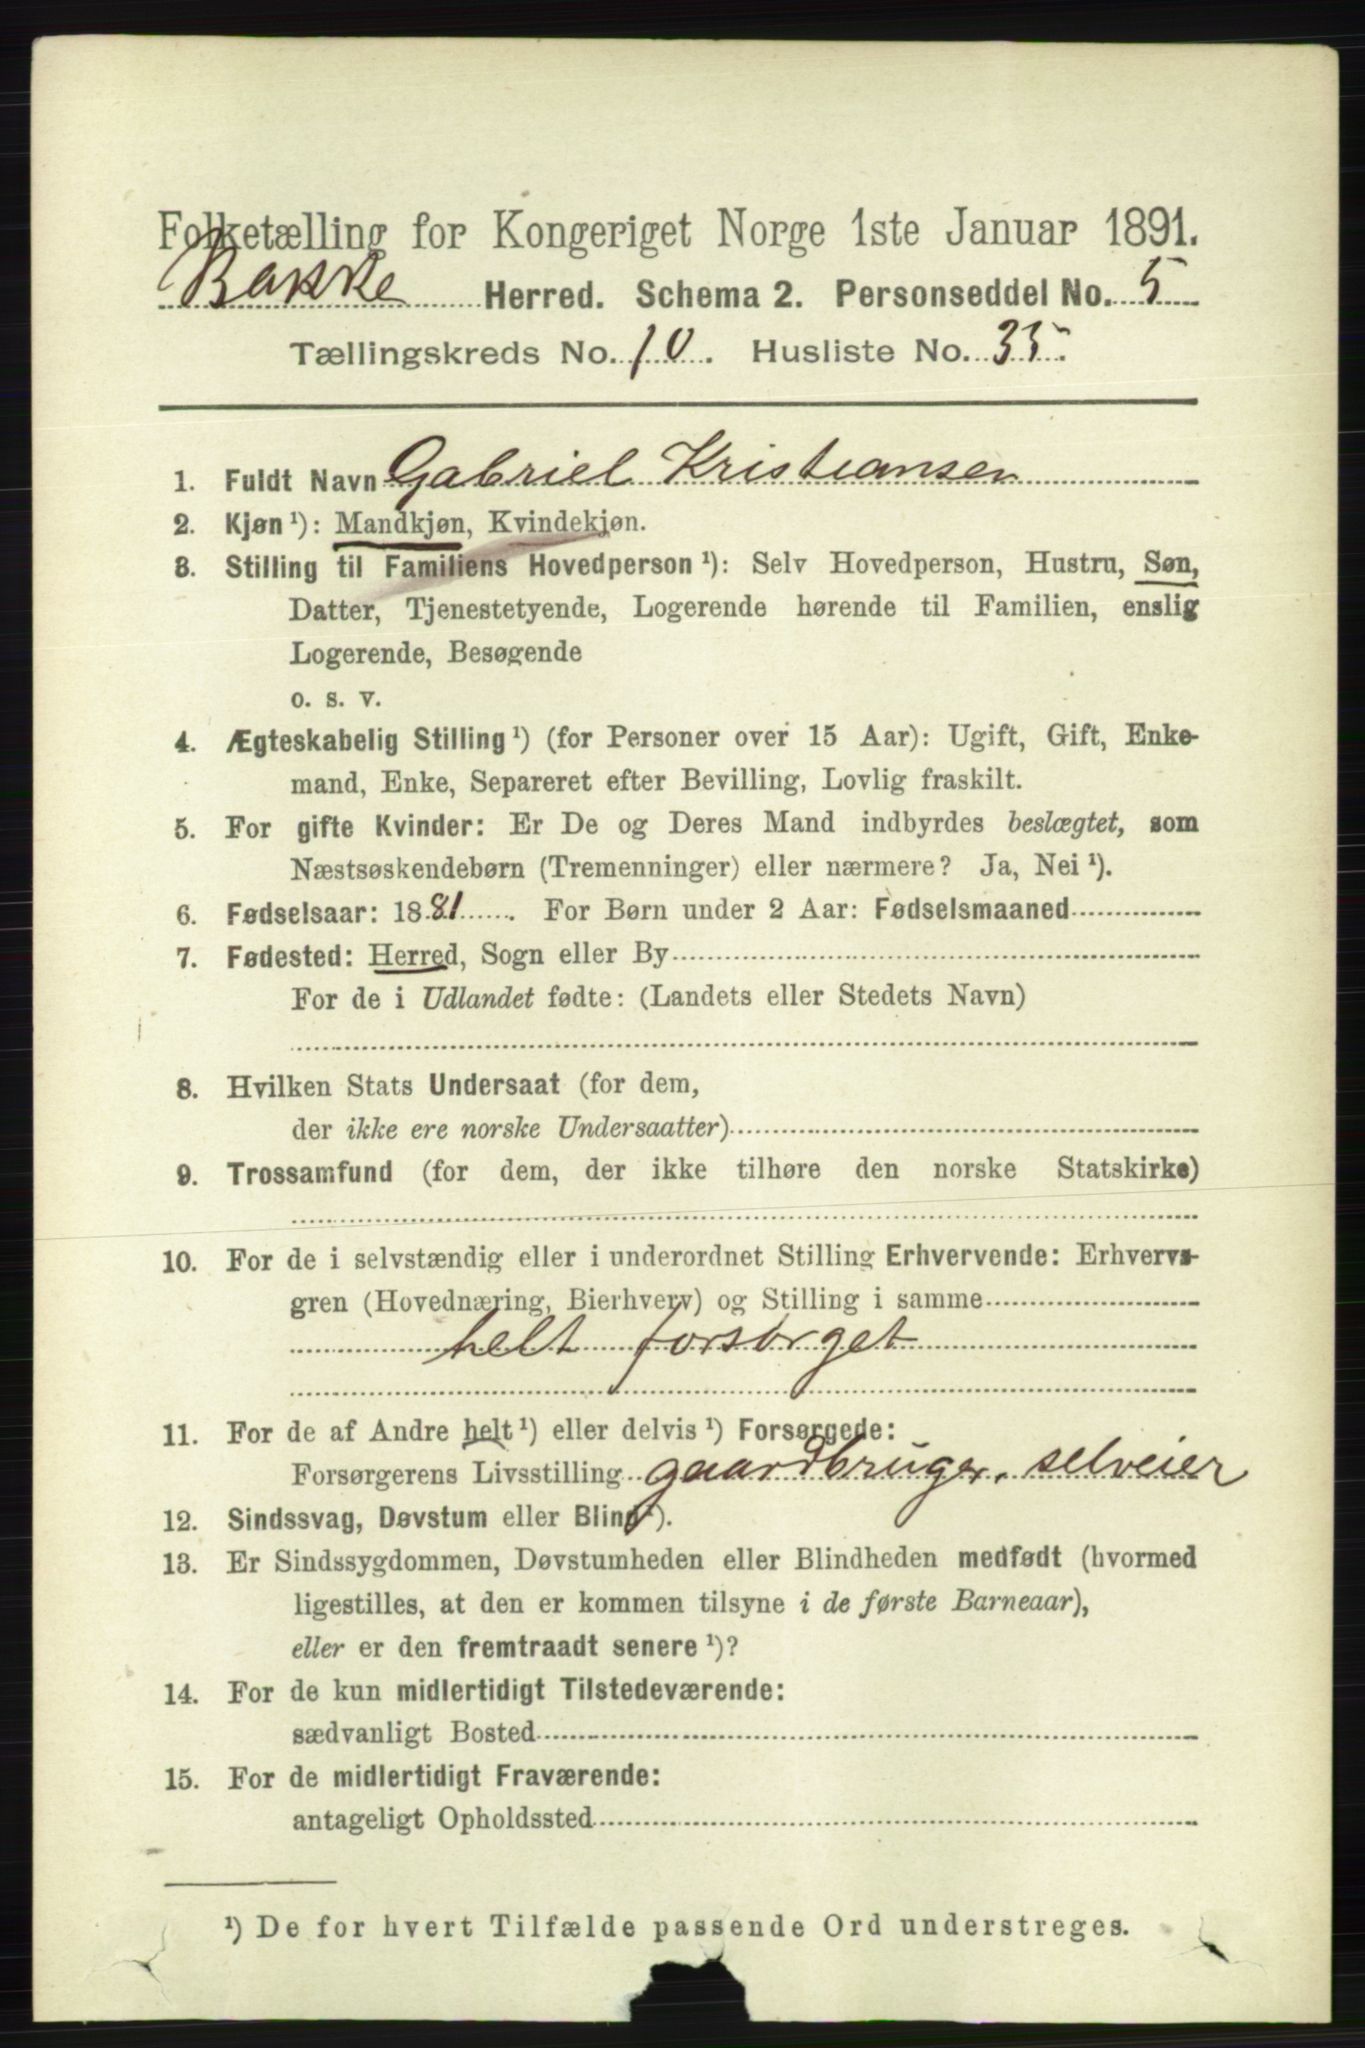 Folketælling for Kongeriget Norge 1ste Januar 1891.
Bakke Herred. Schema 2. Personseddel No. 5
Tællingskreds No. 10. Husliste No. 35.
1. Fuldt Navn Gabriel Kristiansen
2. Kjøn ¹): Mandkjøn, Kvindekjøn.
3. Stilling til Familiens Hovedperson ¹): Selv Hovedperson, Hustru, Søn,
Datter, Tjenestetyende, Logerende hørende til Familien, enslig
Logerende, Besøgende
o. s. v.
4. Ægteskabelig Stilling ¹) (for Personer over 15 Aar): Ugift, Gift, Enke-
mand, Enke, Separeret efter Bevilling, Lovlig fraskilt.
5. For gifte Kvinder: Er De og Deres Mand indbyrdes beslægtet, som
Næstsøskendebørn (Tremenninger) eller nærmere? Ja, Nei ¹).
6. Fødselsaar: 1881. For Børn under 2 Aar: Fødselsmaaned
7. Fødested: Herred, Sogn eller By
For de i Udlandet fødte: (Landets eller Stedets Navn)
8. Hvilken Stats Undersaat (for dem,
der ikke ere norske Undersaatter)
9. Trossamfund (for dem, der ikke tilhøre den norske Statskirke)
10. For de i selvstændig eller i underordnet Stilling Erhvervende: Erhvervs-
gren (Hovednæring, Bierhverv) og Stilling i samme
helt forsørget
11. For de af Andre helt ¹) eller delvis ¹) Forsørgede:
Forsørgerens Livsstilling gaardbruger, selveier
12. Sindssvag, Døvstum eller Blind ¹).
13. Er Sindssygdommen, Døvstumheden eller Blindheden medfødt (hvormed
ligestilles, at den er kommen tilsyne i de første Barneaar),
eller er den fremtraadt senere ¹)?
14. For de kun midlertidigt Tilstedeværende:
sædvanligt Bosted
15. For de midlertidigt Fraværende:
antageligt Opholdssted
¹) De for hvert Tilfælde passende Ord understreges.